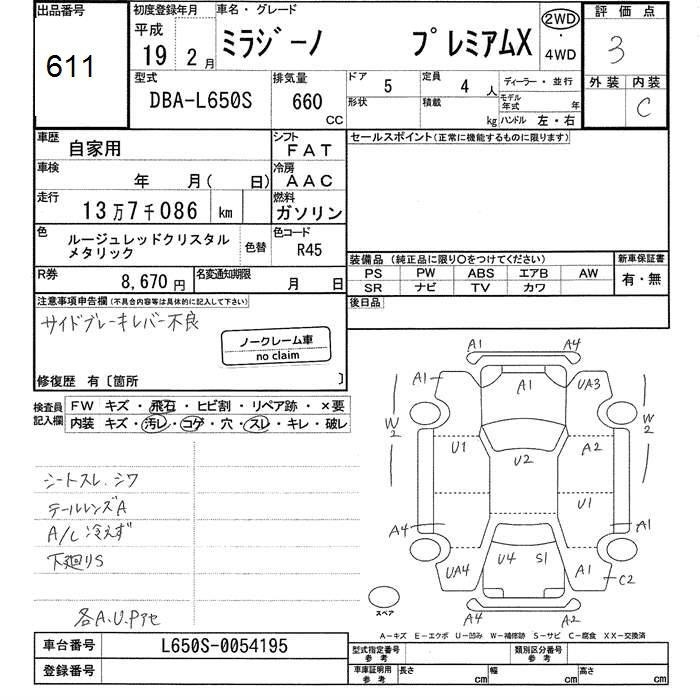 出品番号
611
初度登録年月
平成
19 2月
車名・グレード
ミラジーノ プレミアムX
2WD
・
4WD
評価点
3
型式
DBA-L650S
排気量
660
CC
ドア 5
定員 4 人
形状
積載 kg
ディーラー・並行
モデル年式 年
ハンドル 左・右
外装 内装
C
車歴
自家用
シフト
FAT
車検
年 月( 日)
冷房
AAC
走行
13万7千086 km
燃料
ガソリン
色
ルージュレッドクリスタル
メタリック
色替
色コード
R45
R券
8,670円
名変通知期限
月 日
セールスポイント(正常に機能するものに限ります)
装備品(純正品に限り○をつけてください)
新車保証書
PS PW ABS エアB AW
有・無
SR ナビ TV カワ
後日品
注意事項申告欄(不具合内容等は具体的に記入して下さい)
サイドブレーキレバー不良
ノークレーム車
no claim
修復歴 有〔箇所 〕
検査員
記入欄
FW キズ・飛石・ヒビ割・リペア跡・×要
内装 キズ・汚レ・コゲ・穴・スレ・キレ・破レ
シートスレ、シワ
テールレンズA
A/C 冷えず
下廻りS
各A.U.Pアセ
A1 A4
A1 A1 UA3
W2 W2
U1 U2 A2
U1
A4 A1
UA4 U4 S1 A1
C2
スペア
A4 A2
A-キズ E-エクボ U-凹み W-補修跡 S-サビ C-腐食 XX-交換済
車台番号
L650S-0054195
登録番号
型式指定番号
参考
類別区分番号
参考
車庫証明用
参考
長さ cm
幅 cm
高さ cm